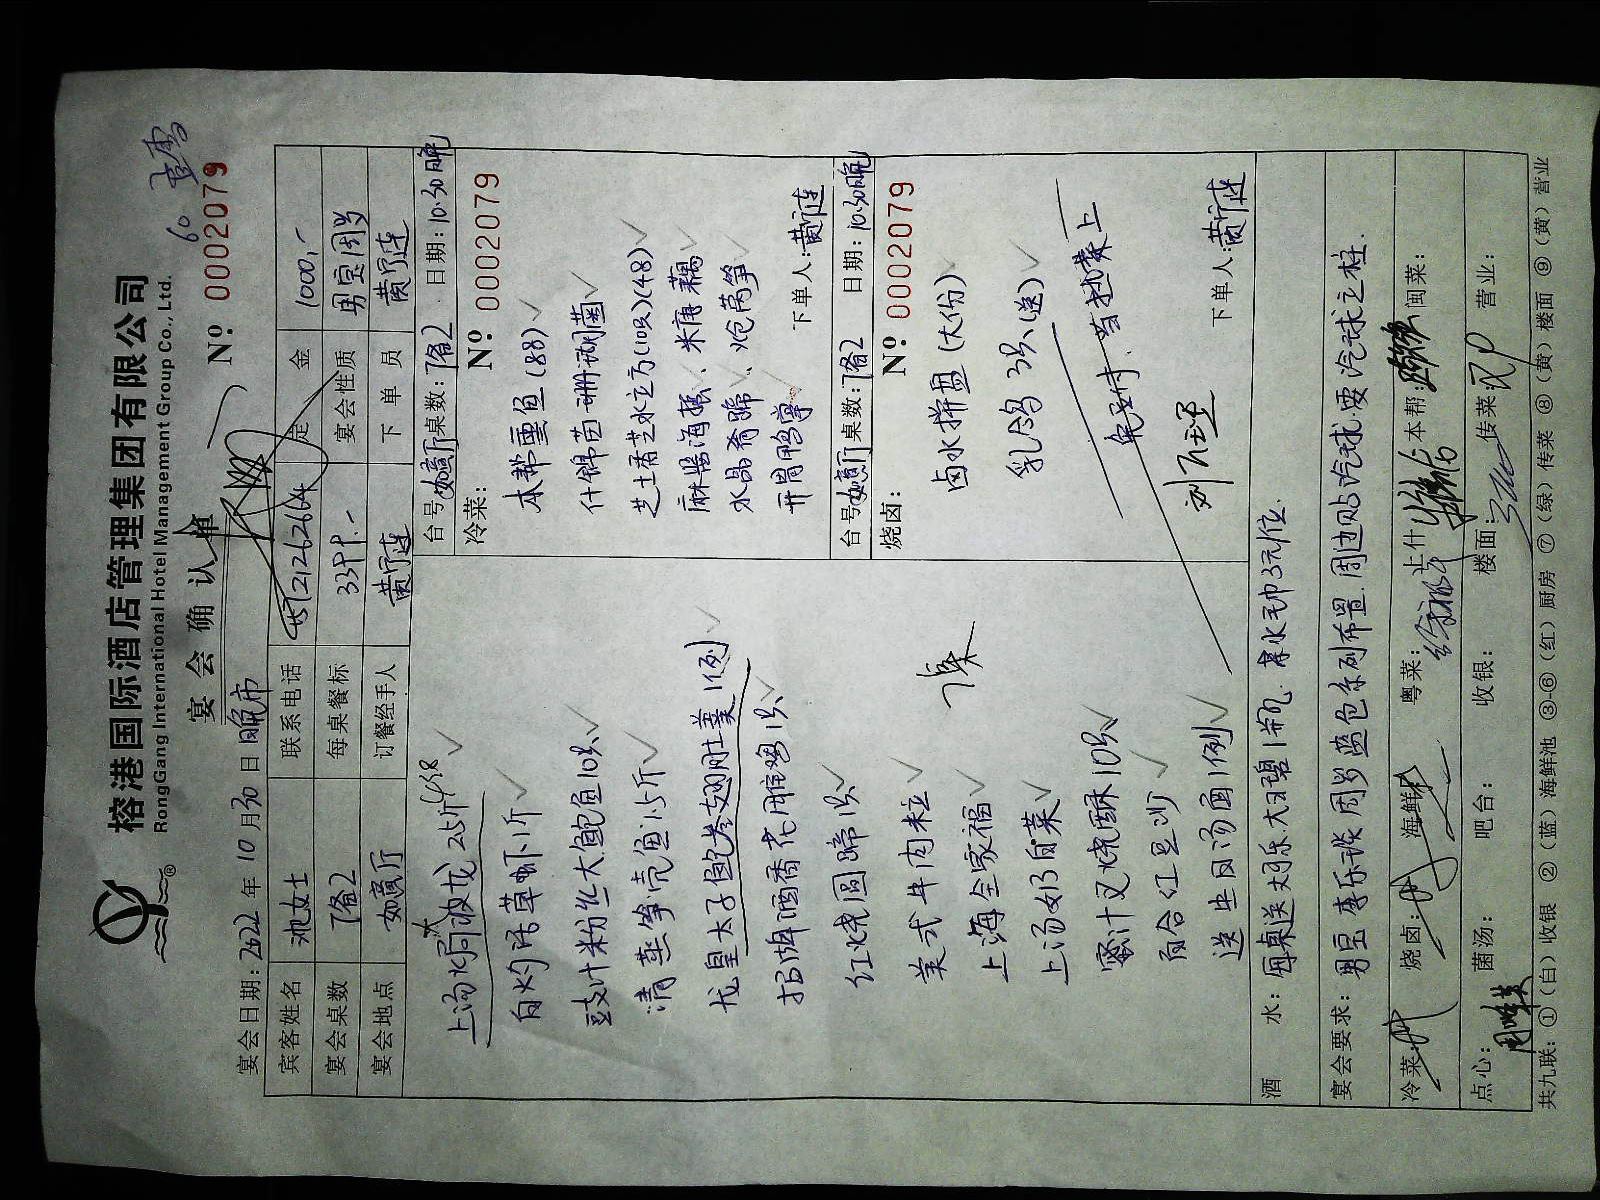 榕港国际酒店管理集团有限公司
RongGang International Hotel Management Group Co., Ltd.
宴会确认单
60
Nº 0002079
宴会日期：2022年10月30日晚市
宾客姓名 池女士 联系电话 定金 1000,-
宴会桌数 7备2 每桌餐标 33PP.- 宴会性质 男宝周岁
宴会地点 如意厅 订餐经手人 黄广连 下单员 黄广连
上汤焗波龙2.5斤
白灼活草虾1斤
豉汁粉丝大鲍鱼10只
清蒸笋壳鱼1.5斤
龙皇太子鲍参翅肚羹1例
招牌酒香花雕鸡1只
红烧圆蹄1只
美式牛肉粒
上海全家福
上汤奶白菜
蜜汁叉烧酥10只
百合红豆沙
送生日汤面1例
台号:如意厅 桌数：7备2 日期：10.30晚
冷菜： Nº 0002079
本帮熏鱼(88)
什锦茴珊瑚菌
芝士香芒水立方(10只)(48)
麻酱海蜇、米糟藕
水晶肴蹄、炝莴笋
开胃鸭掌
下单人:黄广连
台号:如意厅 桌数：7备2 日期：10.30晚
烧卤： Nº 0002079
卤水拼盘(大份)
乳鸽3只(送)
当热菜上
下单人:黄广连
酒水：每桌送大可乐大雪碧1瓶.香水毛巾3元/位.
宴会要求：男宝李乐谈周岁蓝色系列布置.周边贴汽球.要汽球立柱.
冷菜： 烧卤： 海鲜： 粤菜： 上什： 本帮： 闽菜：
点心： 菌汤： 吧台： 收银： 楼面： 传菜： 营业：
共九联：①（白）收银 ②（蓝）海鲜池 ③-⑥（红）厨房 ⑦（绿）传菜 ⑧（黄）楼面 ⑨（黄）营业